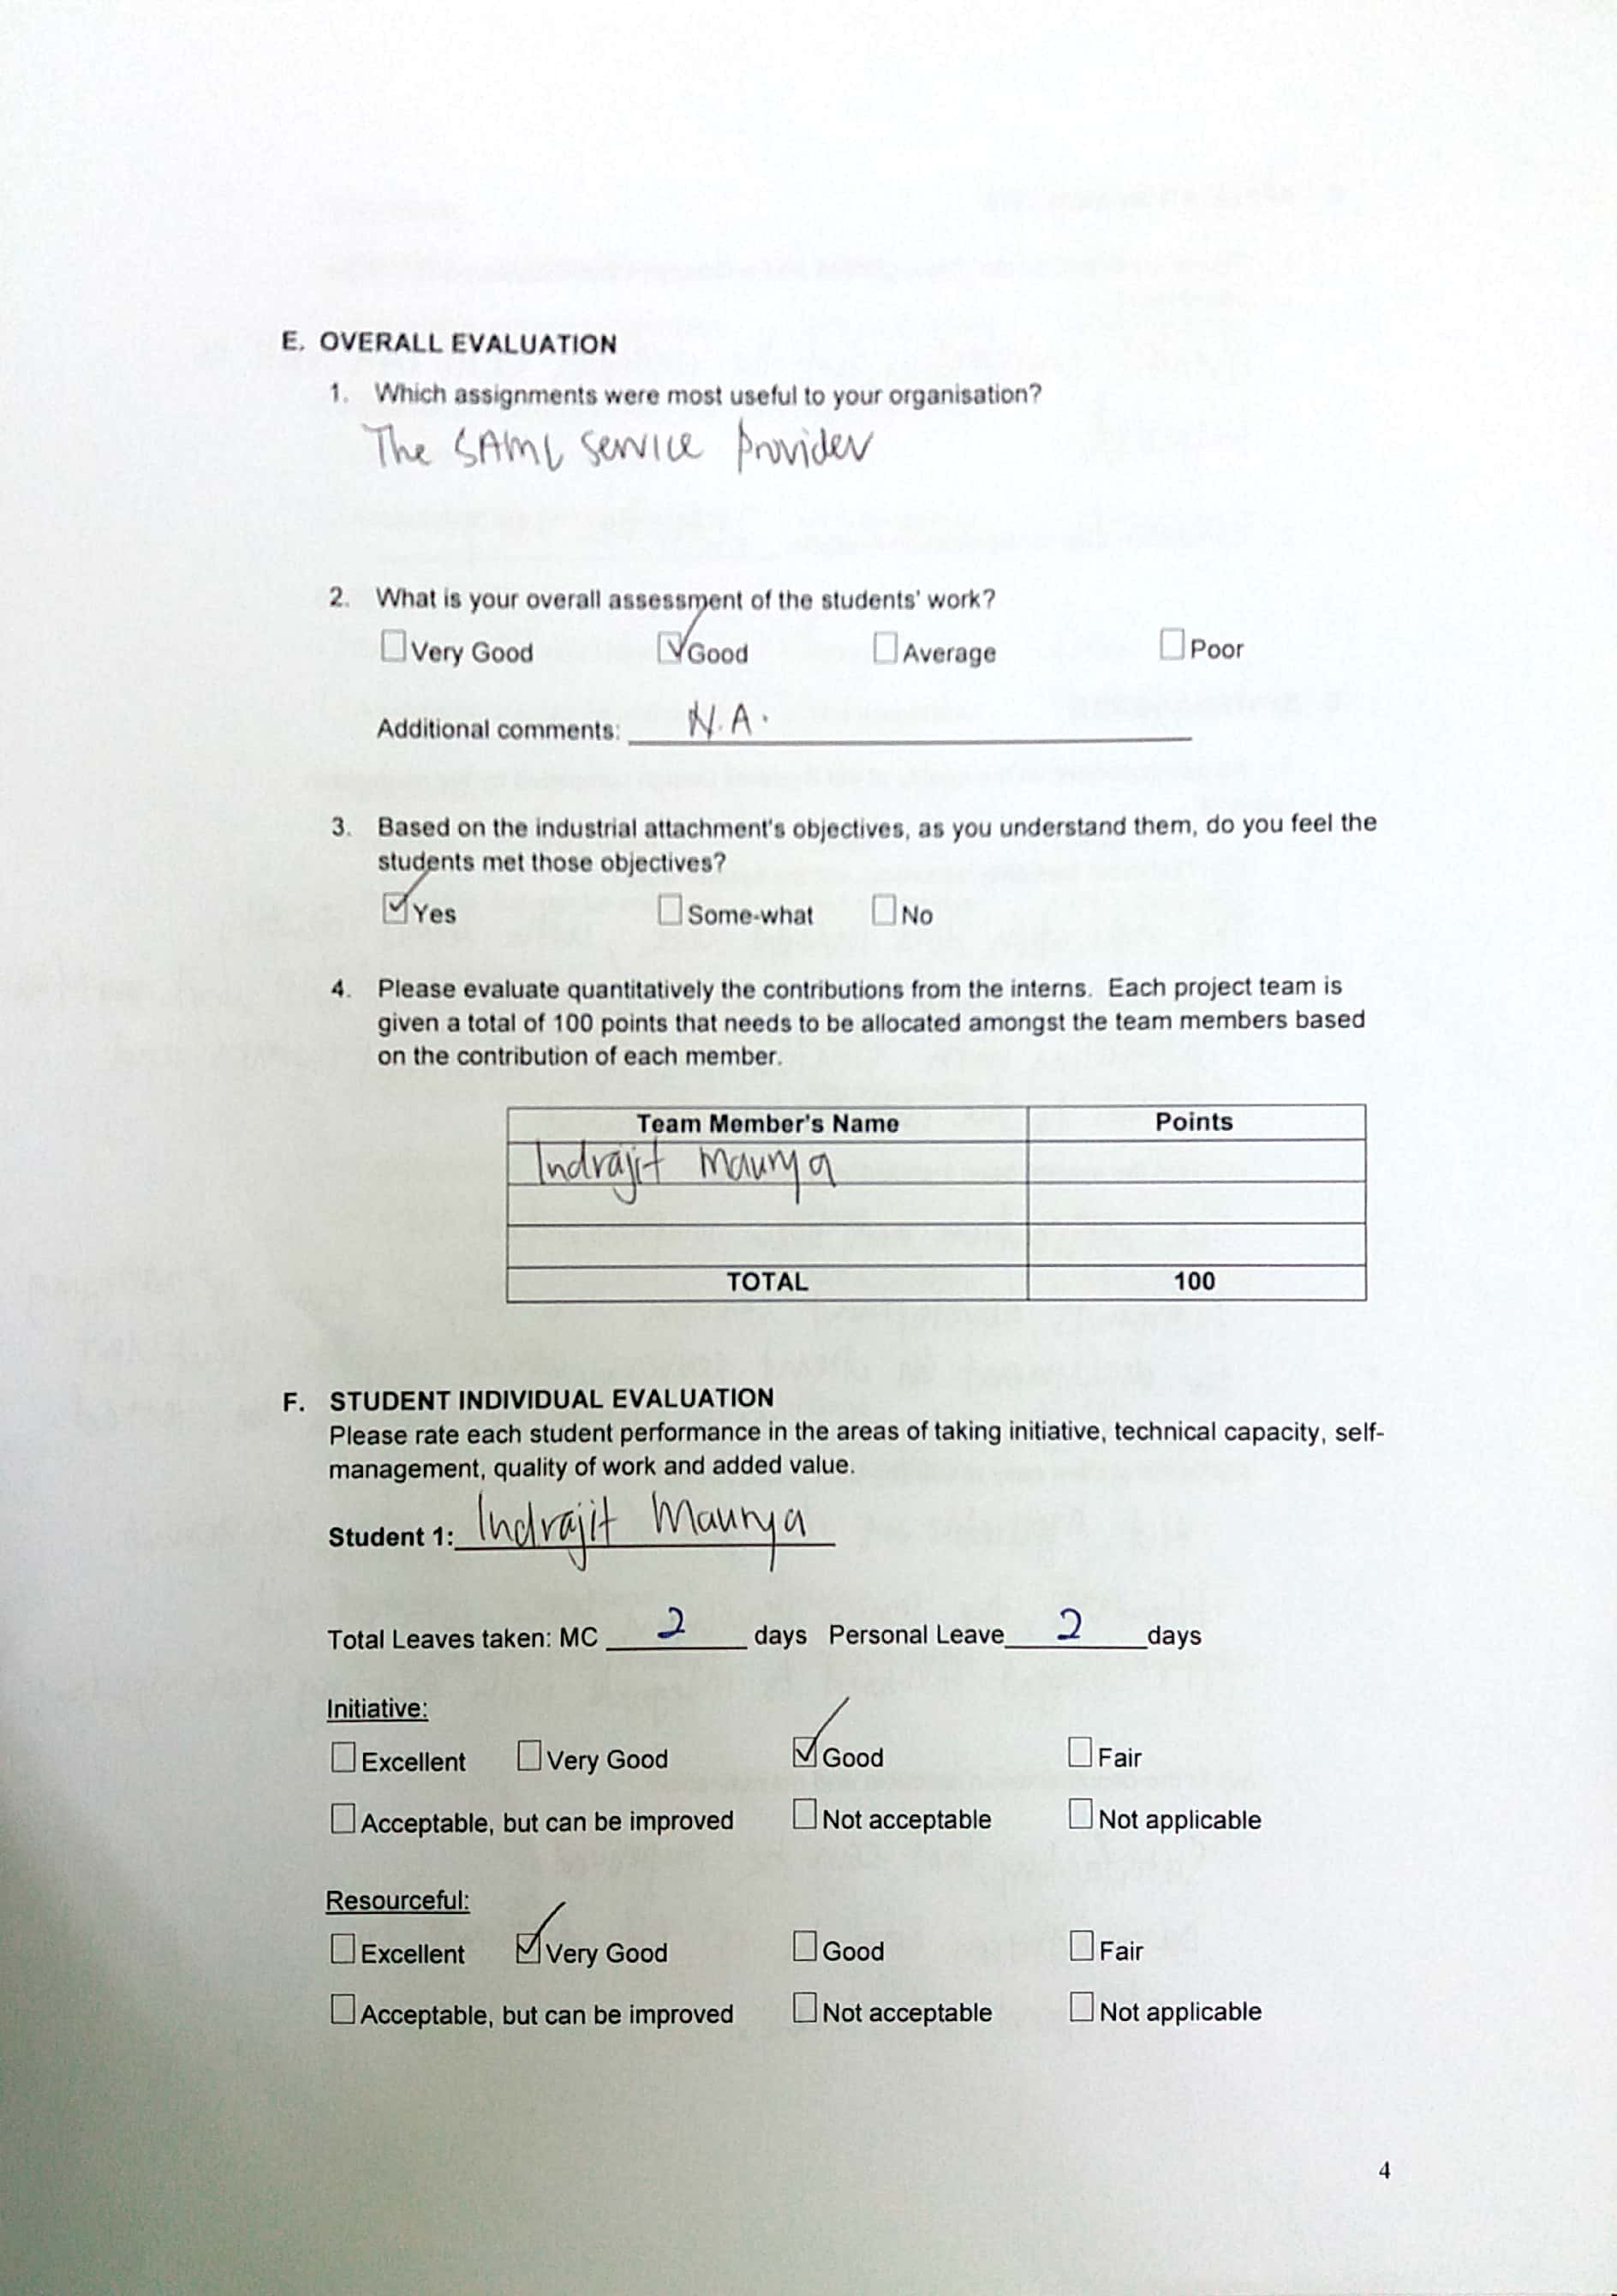 E. OVERALL EVALUATION
1. Which assignments were most useful to your organisation?
The SAML Service Provider
2. What is your overall assessment of the students' work?
☐ Very Good ☑ Good ☐ Average ☐ Poor
Additional comments: N.A.
3. Based on the industrial attachment's objectives, as you understand them, do you feel the
students met those objectives?
☑ Yes ☐ Some-what ☐ No
4. Please evaluate quantitatively the contributions from the interns. Each project team is
given a total of 100 points that needs to be allocated amongst the team members based
on the contribution of each member.
Team Member's Name Points
Indrajit Maurya
TOTAL 100
F. STUDENT INDIVIDUAL EVALUATION
Please rate each student performance in the areas of taking initiative, technical capacity, self-
management, quality of work and added value.
Student 1: Indrajit Maurya
Total Leaves taken: MC 2 days Personal Leave 2 days
Initiative:
☐ Excellent ☐ Very Good ☑ Good ☐ Fair
☐ Acceptable, but can be improved ☐ Not acceptable ☐ Not applicable
Resourceful:
☐ Excellent ☑ Very Good ☐ Good ☐ Fair
☐ Acceptable, but can be improved ☐ Not acceptable ☐ Not applicable
4